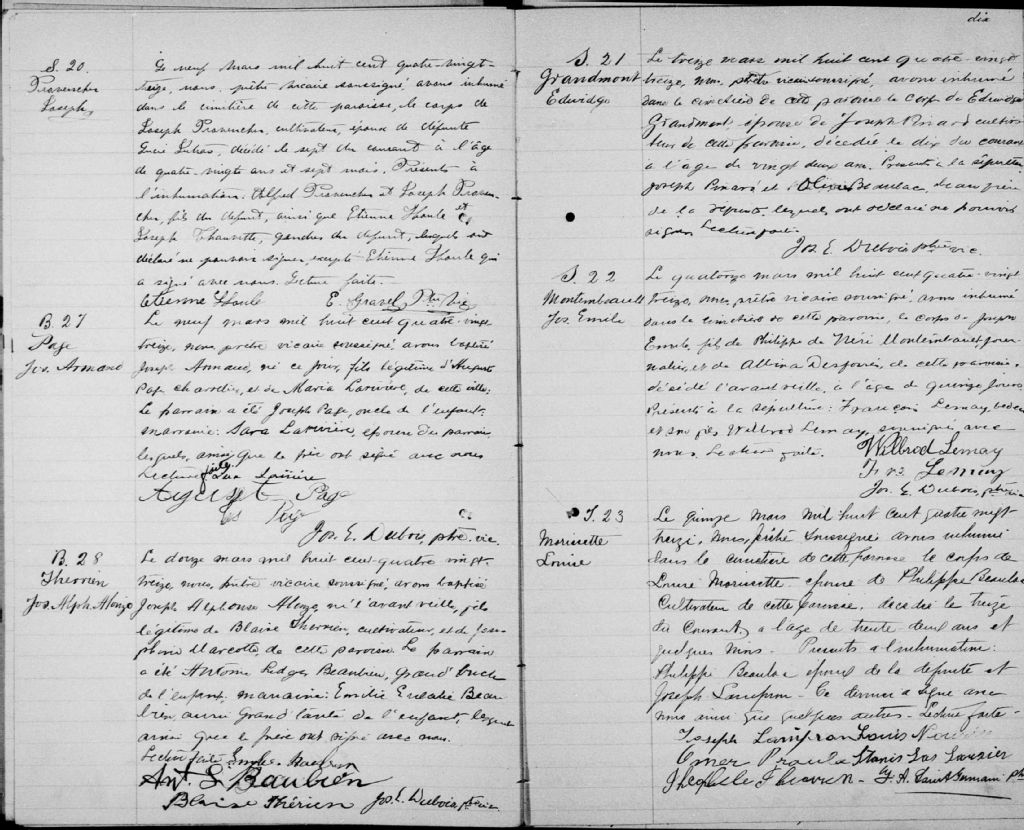 S. 20.
Provencher
Joseph
Le neuf mars mil huit cent quatre-vingt-
treize, nous, prêtre vicaire soussigné, avons inhumé
dans le cimetière de cette paroisse, le corps de
Joseph Provencher, cultivateur, époux de défunte
décédé le sept du courant à l'âge
de quatre-vingts ans et sept mois. Présents à
l'inhumation: Alfred Provencher et Joseph Proven-
cher, fils du défunt, ainsi que Etienne Houle et
Joseph gendres du défunt, lesquels ont
déclaré ne pouvoir signer, excepté Etienne Houle qui
a signé avec nous. Lecture faite.
Etienne Houle E. Gravel Ptre Vic
B. 27
Page
Jos. Armand
Le neuf mars mil huit cent quatre-vingt
treize, nous, prêtre vicaire soussigné, avons baptisé
Joseph Armand, né ce jour, fils légitime d'Auguste
Page charretier, et de Maria Larivière, de cette ville.
Le parrain a été Joseph Page, oncle de l'enfant,
marraine: Sara Larivière, épouse du parrain,
lesquels, ainsi que le père ont signé avec nous
Lecture faite.
August Page
Jos. E. Dubois, ptre. vic.
B. 28
Therrien
Jos. Alph. Alonzo
Le douze mars mil huit cent quatre vingt-
treize, nous, prêtre vicaire soussigné, avons baptisé
Joseph Alphonse Alonzo, né l'avant veille, fils
légitime de Blaise Therrien, cultivateur, et de José-
phine Marcotte, de cette paroisse. Le parrain
a été Antoine Beaubien, Grand'oncle
de l'enfant, marraine: Emélie Eulalie Beau-
bien, aussi Grand'tante de l'enfant, lesquels
ainsi que le père ont signé avec nous.
Lecture faite. Emélie Beaubien
Ant. L Baubien
Blaise Thérien Jos. E. Dubois, ptre. vic.
dix
S. 21
Grandmont
Edwidge
Le treize mars mil huit cent quatre vingt
treize, nous, prêtre vicaire soussigné, avons inhumé
dans le cimetière de cette paroisse le corps de Edwidge
Grandmont, épouse de Joseph Pinard cultiva-
teur de cette paroisse, décédée le dix du courant
à l'âge de vingt deux ans. Présents à la sépulture
Joseph Pinard et Olivier Beaulac, beau-père
de la défunte, lesquels ont déclaré ne pouvoir
signer. Lecture faite.
Jos. E. Dubois ptre. vic.
S. 22
Montembeault
Jos. Emile
Le quatorze mars mil huit cent quatre-vingt
treize, nous, prêtre vicaire soussigné, avons inhumé
dans le cimetière de cette paroisse, le corps de Joseph
Emile, fils de Philippe de Néri Montembeault, jour-
nalier, et de Albina de cette paroisse,
décédé l'avant veille, à l'âge de quinze jours.
Présents à la sépulture: François Lemay, bedeau
et son fils Wilbrod Lemay, soussignés avec
nous. Lecture faite.
Wilbrod Lemay
Frs Lemay
Jos. E. Dubois, ptre. vic.
S. 23
Morissette
Louise
Le quinze mars mil huit cent quatre vingt
treize, nous, prêtre soussigné avons inhumé
dans le cimetière de cette paroisse le corps de
Louise Morissette épouse de Philippe Beaulac
Cultivateur de cette paroisse, décédée le treize
du Courant, a l'age de trente deux ans et
quelques mois. Présents a l'inhumation:
Philippe Beaulac époux de la défunte et
Joseph Lampron. Ce dernier a signé avec
nous ainsi que quelques autres. Lecture faite.
Joseph Lampron Louis
Omer Stanislas
Therrien